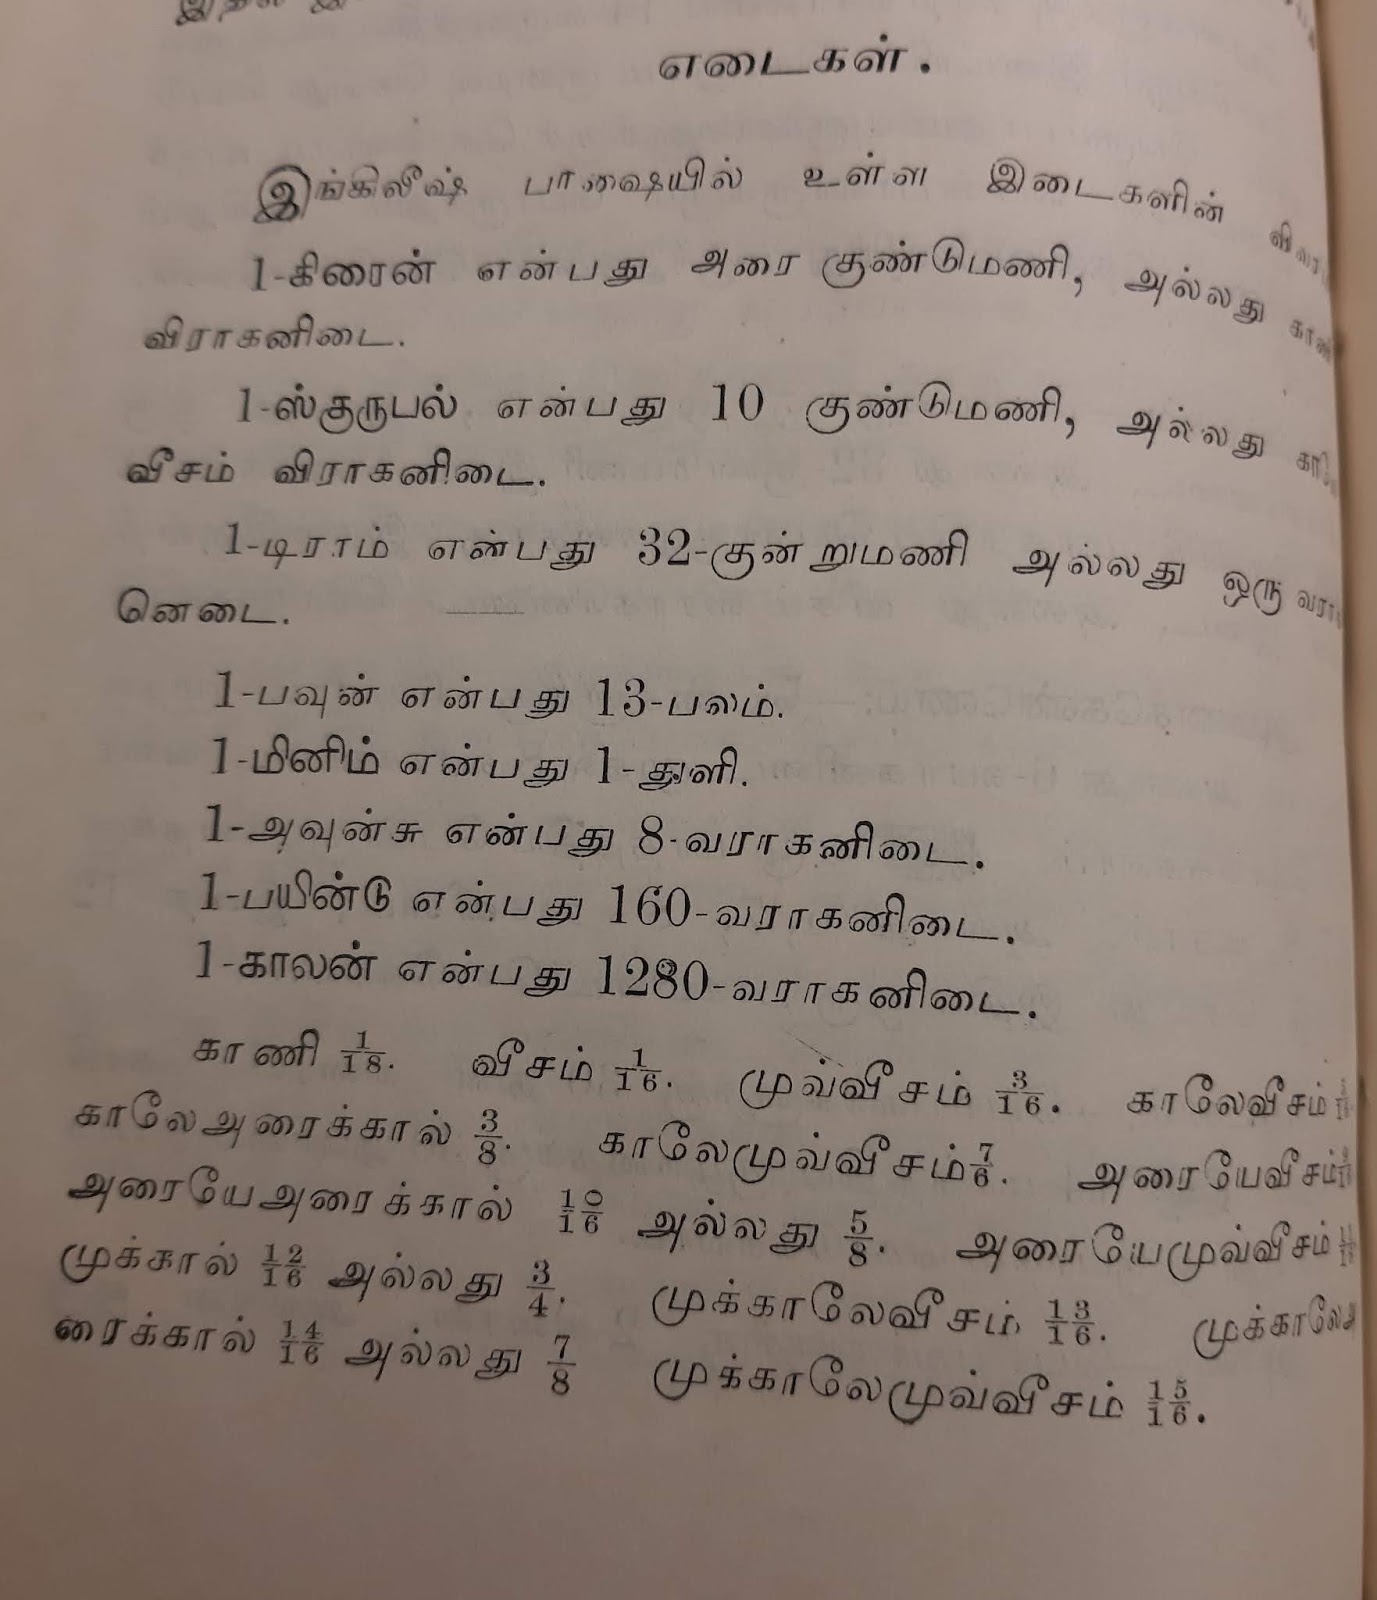 எடைகள்.
இங்கிலீஷ் பாஷையில் உள்ள இடைகளின்
1-கிரைன் என்பது அரை குண்டுமணி, அல்லது
விராகனிடை.
1-ஸ்குருபல் என்பது 10 குண்டுமணி, அல்லது
வீசம் விராகனிடை.
1-டிராம் என்பது 32-குன்றுமணி அல்லது ஒரு வரா
னெடை.
1-பவுன் என்பது 13-பலம்.
1-மினிம் என்பது 1-துளி.
1-அவுன்சு என்பது 8-வராகனிடை.
1-பயிண்டு என்பது 160-வராகனிடை.
1-காலன் என்பது 1280-வராகனிடை.
காணி 1/18. வீசம் 1/16. முவ்வீசம் 3/16. காலேவீசம்
காலேஅரைக்கால் 3/8. காலேமுவ்வீசம் 7/6. அரையேவீசம்
அரையேஅரைக்கால் 10/16 அல்லது 5/8. அரையேமுவ்வீசம்
முக்கால் 12/16 அல்லது 3/4. முக்காலேவீசம் 13/16. முக்காலேஅ
ரைக்கால் 14/16 அல்லது 7/8 முக்காலேமுவ்வீசம் 15/16.